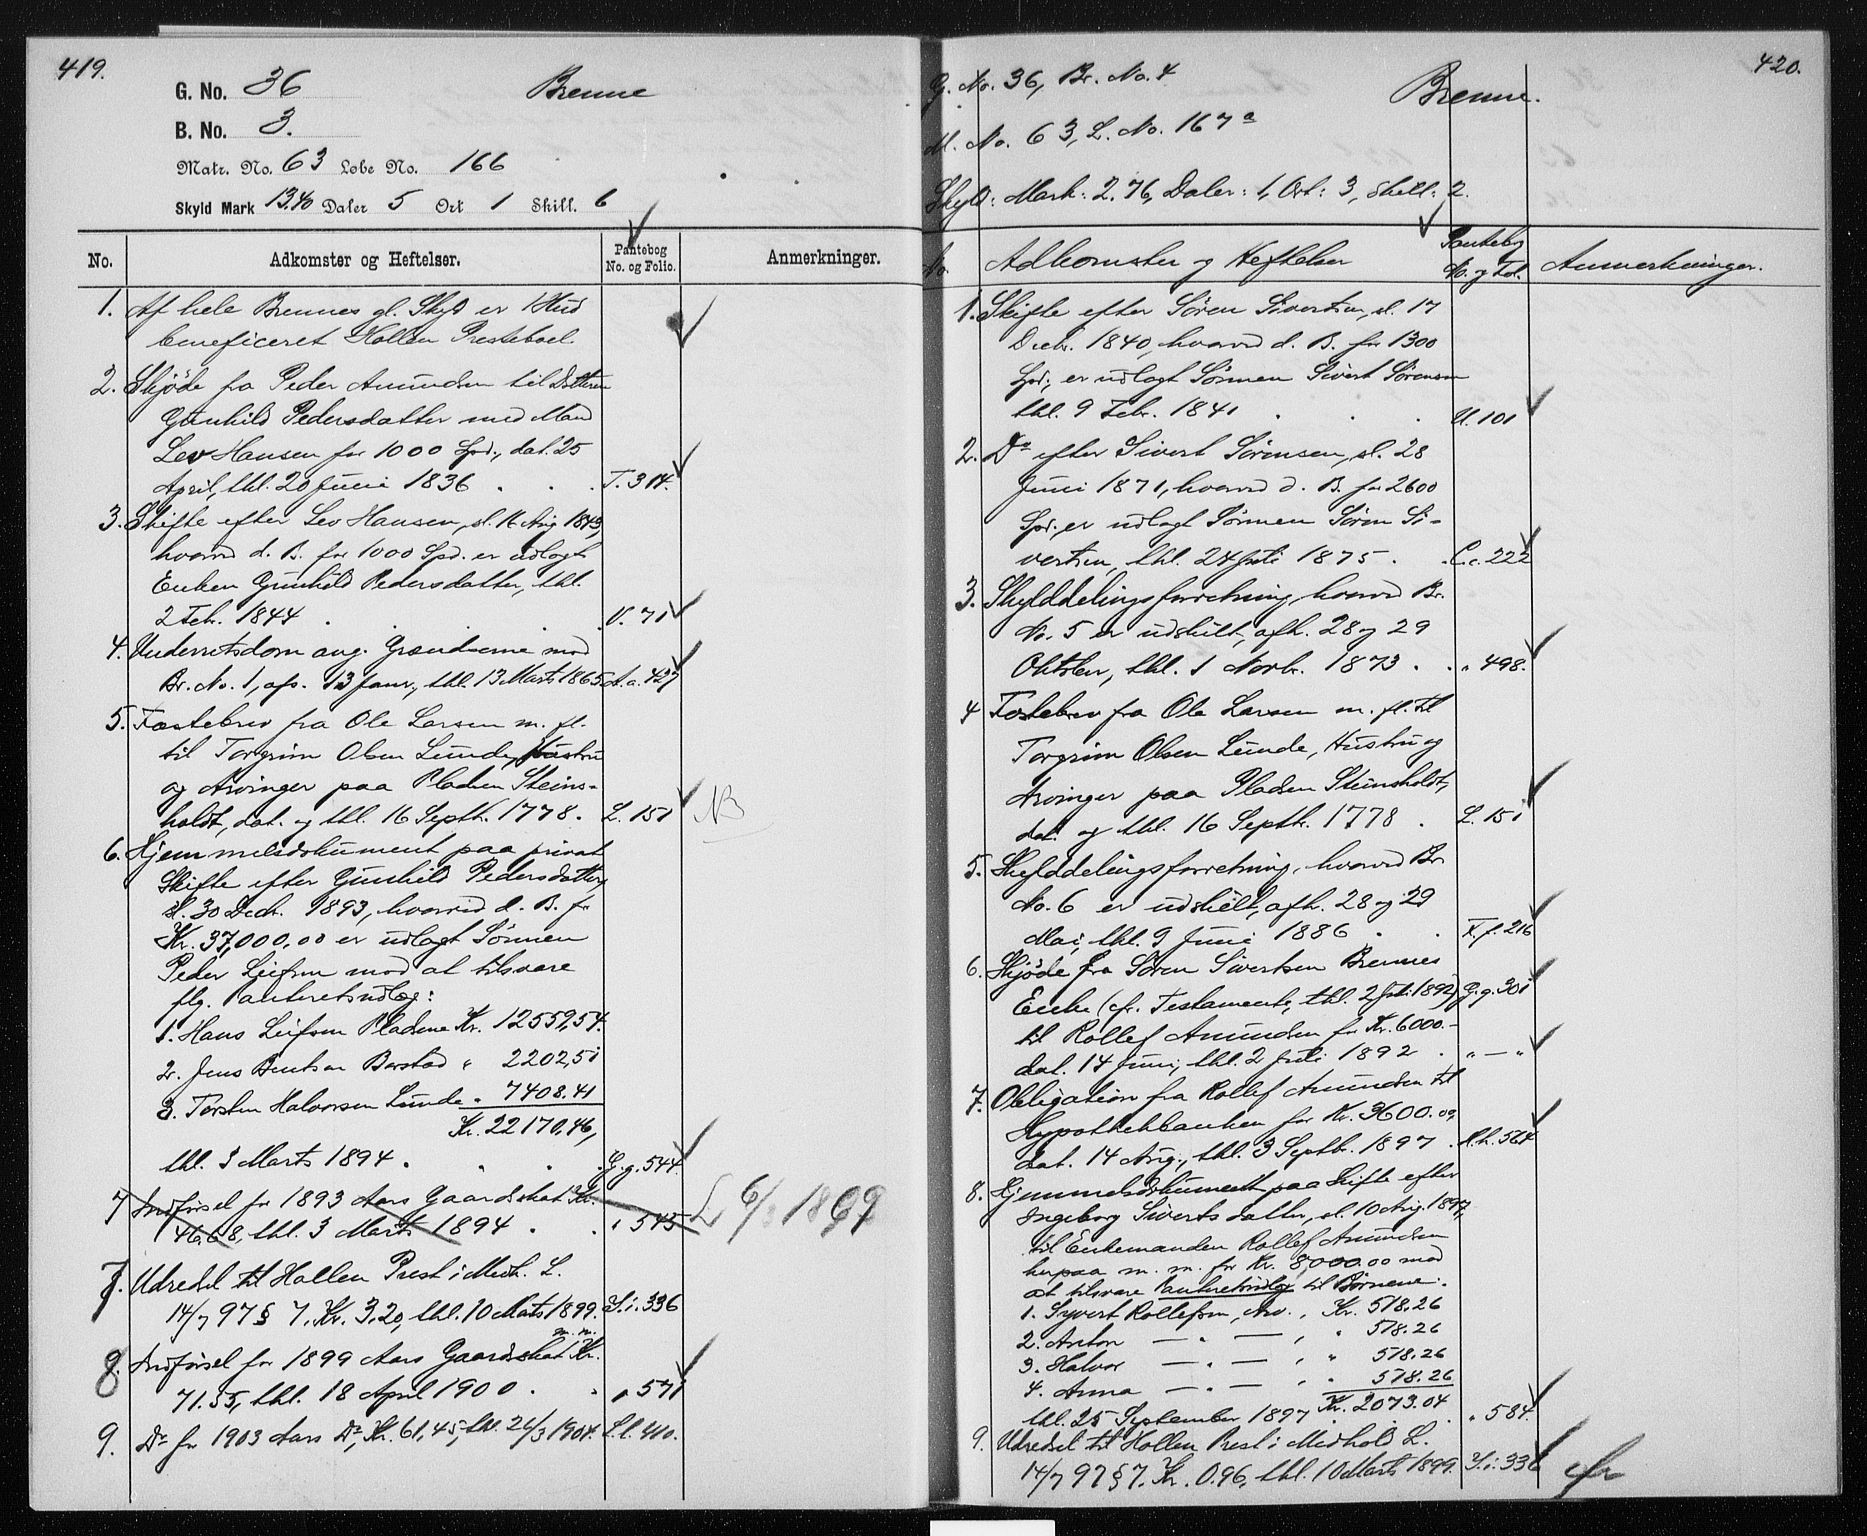 419.
G. No. 36 Brenne
B. No. 3.
Matr. No. 63 Løbe No. 166
Skyld Mark 13.40 Daler 5 Ort 1 Skill. 6
No. Adkomster og Heftelser. Pantebog No. og Folio. Anmerkninger.
1. Af hele Brennes gl. Skyld er 1 Hud
beneficeret Hollen Presteboel.
2. Skjöde fra Peder Amundsen til Datteren
Gunhild Pedersdatter med Mand
Lev Hansen for 1000 Spd., dat. 25
April, thl. 20 Juni 1836 . . T. 314.
3. Skifte efter Lev Hansen, sl. 16 Aug 1843,
hvorved d. B. for 1000 Spd. er udlagt
Enken Gunhild Pedersdatter, thl.
2 Feb. 1844 . . . V. 71
4. Underretsdom ang. Grændserne mod
Br. No. 1, afs. 13 Janr., thl. 13 Marts 1865. A.a. 427
5. Fæstebrev fra Ole Larsen m. fl.
til Torgrim Olsen Lunde, Hustru
og Arvinger paa Pladsen Steins-
holdt, dat. og thl. 16 Septb. 1778. L. 151 NB
6. Hjemmelsdokument paa privat
Skifte efter Gunhild Pedersdatter,
sl. 30 Decb. 1893, hvorved d. B. for
Kr. 37,000,00 er udlagt Sönnen
Peder Leifsen mod at tilsvare
flg. Panteretsudlæg:
1. Hans Leifsen Pladsene Kr. 12559,54.
2. Jens Bentsen Borstad " 2202,51
3. Torsten Halvorsen Lunde " 7408.41
Kr. 22170,46,
thl. 3 Marts 1894 . . . G.g. 544.
7 Indførsel for 1893 Aars Gaardskat Kr.
46.68, thl. 3 Marts 1894 . . " 545 L 6/3 1899
7. Udredsel til Hollen Prest i Medh. L.
14/7 97 § 7, Kr. 3,20, thl. 10 Marts 1899. I.i. 336
m. m.
8. Indførsel for 1899 Aars Gaardskat Kr.
71.55, thl. 18 April 1900 . . " 571
9. Do for 1903 Aars Do, Kr. 61,45, thl. 26/3 1904. L.l. 410.
420.
G. No. 36, Br. No. 4 Brenne.
M. No. 63, L. No. 167 a
Skyld: Mark: 2.76, Daler: 1, Ort: 3, Skill: 2.
No. Adkomster og Heftelser Pantebog No. og Fol. Anmerkninger.
1. Skifte efter Sören Sivertsen, sl. 17
Decb. 1840, hvorved d. B. for 1300
Spd., er udlagt Sönnen Sivert Sörensen
thl. 9 Febr. 1841 . . . U. 101
2. Do efter Sivert Sörensen, sl. 28
Juni 1871, hvorved d. B. for 2600
Spd. er udlagt Sönnen Sören Si-
vertsen, thl. 24 Juli 1875 . C.c. 222
3. Skylddelingsforretning, hvorved Br.
No. 5 er udskilt, afh. 28 og 29
Oktober, thl. 1 Novb. 1873 . . " 498.
4 Fæstebrev fra Ole Larsen m. fl. til
Torgrim Olsen Lunde, Hustru og
Arvinger paa Pladsen Steinsholdt,
dat. og thl. 16 Septb. 1778 . L. 151
5. Skylddelingsforretning, hvorved Br
No. 6 er udskilt, afh. 28 og 29
Mai, thl. 9 Juni 1886 . . F.f. 216
6. Skjöde fra Sören Sivertsen Brennes
Enke (cfr. Testamente, thl. 2 Juli 1892) G.g. 301
til Rollef Amundsen for Kr. 6000.–
dat. 14 Juni, thl. 2 Juli 1892 . " — "
7. Obligation fra Rollef Amundsen til
Hypothekbanken for Kr. 3600.00,
dat. 14 Aug., thl. 3 Septb. 1897 . H.h. 564
8. Hjemmelsdokument paa Skifte efter
Ingeborg Sivertsdatter, sl. 10 Aug. 1897,
til Enkemanden Rollef Amundsen
herpaa m. m. for Kr. 8,000.00 mod
at tilsvare Panteretsudlæg til Börnene:
1. Syvert Rollefsen, Arv., Kr. 518.26
2. Anton — " — , " 518.26
3. Halvor — " — , " 518.26
4. Anna — " — , " 518.26
thl. 25 September 1897 Kr. 2073.04 . " 584.
9. Udredsel til Hollen Prest i Medhold L.
14/7 97 § 7. Kr. 0.96, thl. 10 Marts 1899. I.i. 336 cfr